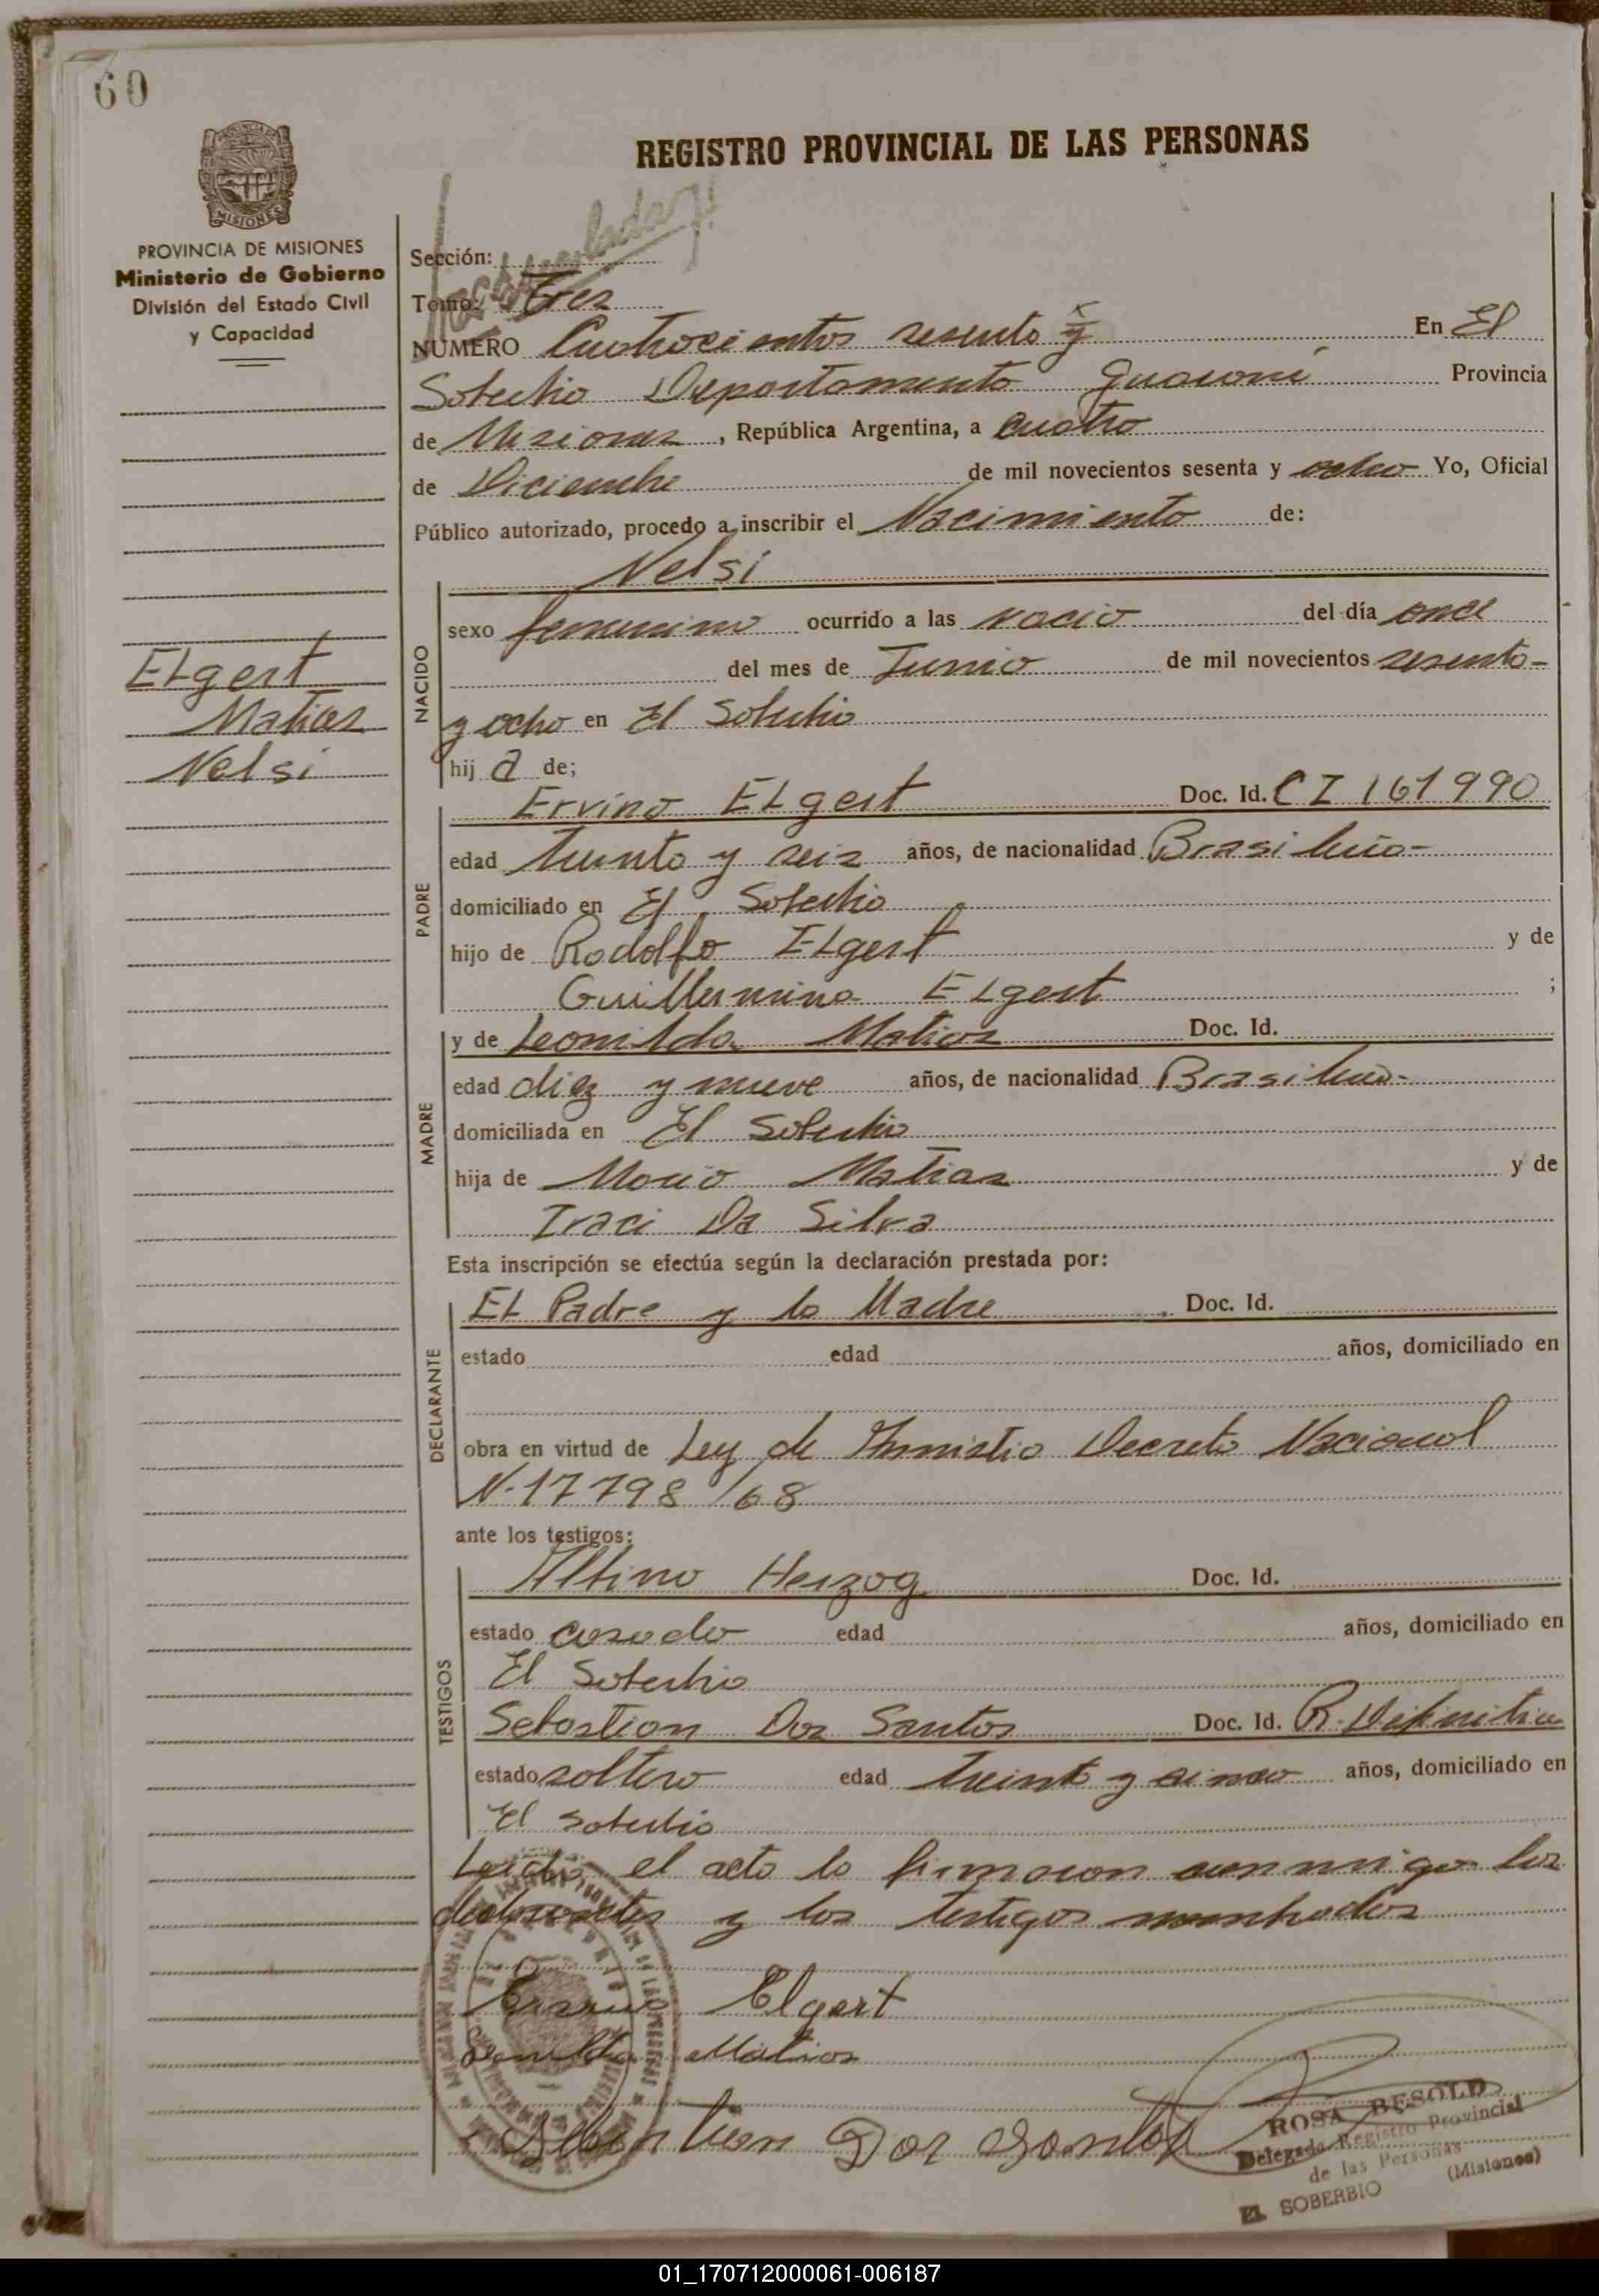 60
REGISTRO PROVINCIAL DE LAS PERSONAS
MISIONES
PROVINCIA DE MISIONES
Ministerio de Gobierno
División del Estado Civil
y Capacidad
Sección:
Tomo: Tres
NUMERO Cuatrocientos sesenta y En El
Soberbio Departamento Guarani Provincia
de Misiones, República Argentina, a cuatro
de Diciembre de mil novecientos sesenta y ocho Yo, Oficial
Público autorizado, procedo a inscribir el Nacimiento de:
Nelsi
NACIDO
sexo femenino ocurrido a las vacio del día once
del mes de Junio de mil novecientos sesenta-
y ocho en El Soberbio
Elgert
Matias
Nelsi
hij a de;
PADRE
Ervino Elgert Doc. Id. CI 161990
edad treinta y seis años, de nacionalidad Brasileño-
domiciliado en El Soberbio
hijo de Rodolfo Elgert y de
Guillermina Elgert ;
MADRE
y de Leonilda Matias Doc. Id.
edad diez y nueve años, de nacionalidad Brasileña-
domiciliada en El Soberbio
hija de Mario Matias y de
Iraci Da Silva
Esta inscripción se efectúa según la declaración prestada por:
DECLARANTE
El Padre y la Madre Doc. Id.
estado edad años, domiciliado en
obra en virtud de Ley de Amnistia Decreto Nacional
N.17798/68
ante los testigos:
TESTIGOS
Albino Herzog Doc. Id.
estado casado edad años, domiciliado en
El Soberbio
Sebastian Dos Santos Doc. Id. R. Definitiva
estado soltero edad treinta y cinco años, domiciliado en
El Soberbio
Leida el acta la firmaron conmigo los
declarantes y los testigos
Ervino Elgert
Leonilda Matias
Sebastian Dos Santos
ROSA BESOLD
Delegada Registro Provincial
de las Personas
EL SOBERBIO (Misiones)
01_170712000061-006187